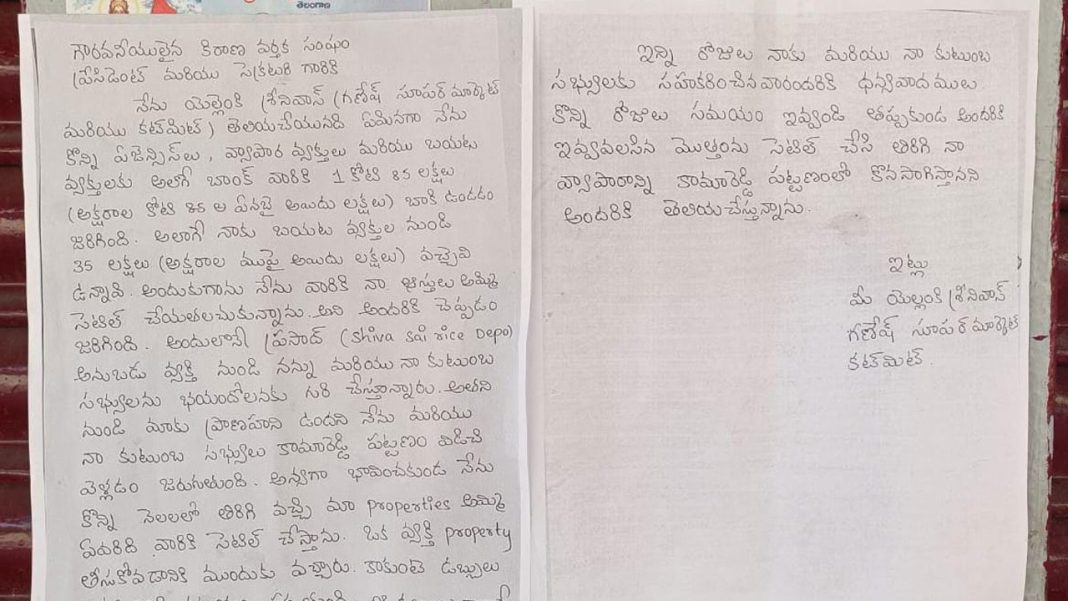 తెలంగాణ
గౌరవనీయులైన కిరాణ వర్తక సంఘం
ప్రేసిడెంట్ మరియు సెక్రటరి గారికి
నేను యెల్లెంకి శ్రీనివాస్ (గణేష్ సూపర్ మార్కెట్
మరియు కట్‌మిట్) తెలియచేయునది ఏమినగా నేను
కొన్ని ఏజెన్సిస్‌లు, వ్యాపార వ్యక్తులు మరియు బయటు
వ్యక్తులకు అలాగే బాంక్ వారికి 1 కోటి 85 లక్షలు
(అక్షరాల కోటి 85 ల ఏనబై అయిదు లక్షలు) బాకి ఉండడం
జరిగింది. అలాగే నాకు బయట వ్యక్తుల నుండి
35 లక్షలు (అక్షరాల ముప్పై అయిదు లక్షలు) వచ్చెవి
ఉన్నావి. అందుకుగాను నేను వారికి నా ఆస్తులు అమ్మి
సెటిల్ చేయతలచుకున్నాను. అని అందరికి చెప్పడం
జరిగింది. అందులోనే ప్రసాద్ (shiva sai rice Depo)
అనుబడు వ్యక్తి నుండి నన్ను మరియు నా కుటుంబ
సభ్యులను భయందోలనకు గురి చేస్తూన్నారు. అతని
నుండి మాకు ప్రాణహాని ఉందని నేను మరియు
నా కుటుంబ సభ్యులు కామారెడ్డి పట్టణం విడిచి
వెళ్లడం జరుగుతుంది. అన్యగా భావించకుండ నేను
కొన్ని నెలలలో తిరిగి వచ్చి మా properties అమ్మి
ఏవరిది వారికి సెటిల్ చేస్తాను. ఒక వ్యక్తి property
తీసుకోవడానికి ముందుకు వచ్చారు. కాకుంతె డబ్బులు
ఇన్ని రోజులు నాకు మరియు నా కుటుంబ
సభ్యులకు సహకరించిన వారందరికి ధన్యవాదములు
కొన్ని రోజులు సమయం ఇవ్వండి తప్పుకుండ అందరికి
ఇవ్వవలసిన మొత్తంను సెటిల్ చేసి తిరిగి నా
వ్యాపారాన్ని కామారెడ్డి పట్టణంలో కొనసాగిస్తానని
అందరికి తెలియచేస్తున్నాను.
ఇట్లు
మీ యెల్లంకి శ్రీనివాస్
గణేష్ సూపర్ మార్కెట్
కట్‌మిట్.